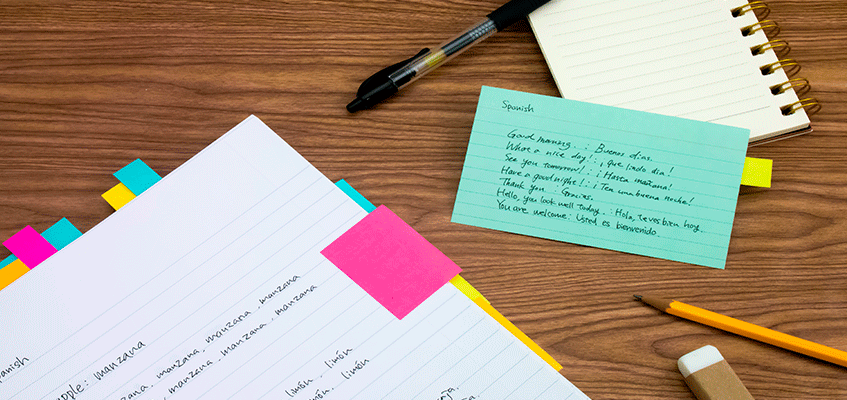 Spanish
Good morning. : Buenos días.
What a nice day! : ¡ que lindo dia!
See you tomorrow! : ¡Hasta mañana!
Have a good night! : ¡Ten una buena noche!
Thank you : Gracias.
Hello, you look well today. : Hola, te ves bien hoy.
You are welcome : Usted es bienvenido.
panish
pple: manzana
manzana, manzana, manzana, manzana
manzana, manzana, manzana
limón, limón
limón, limón